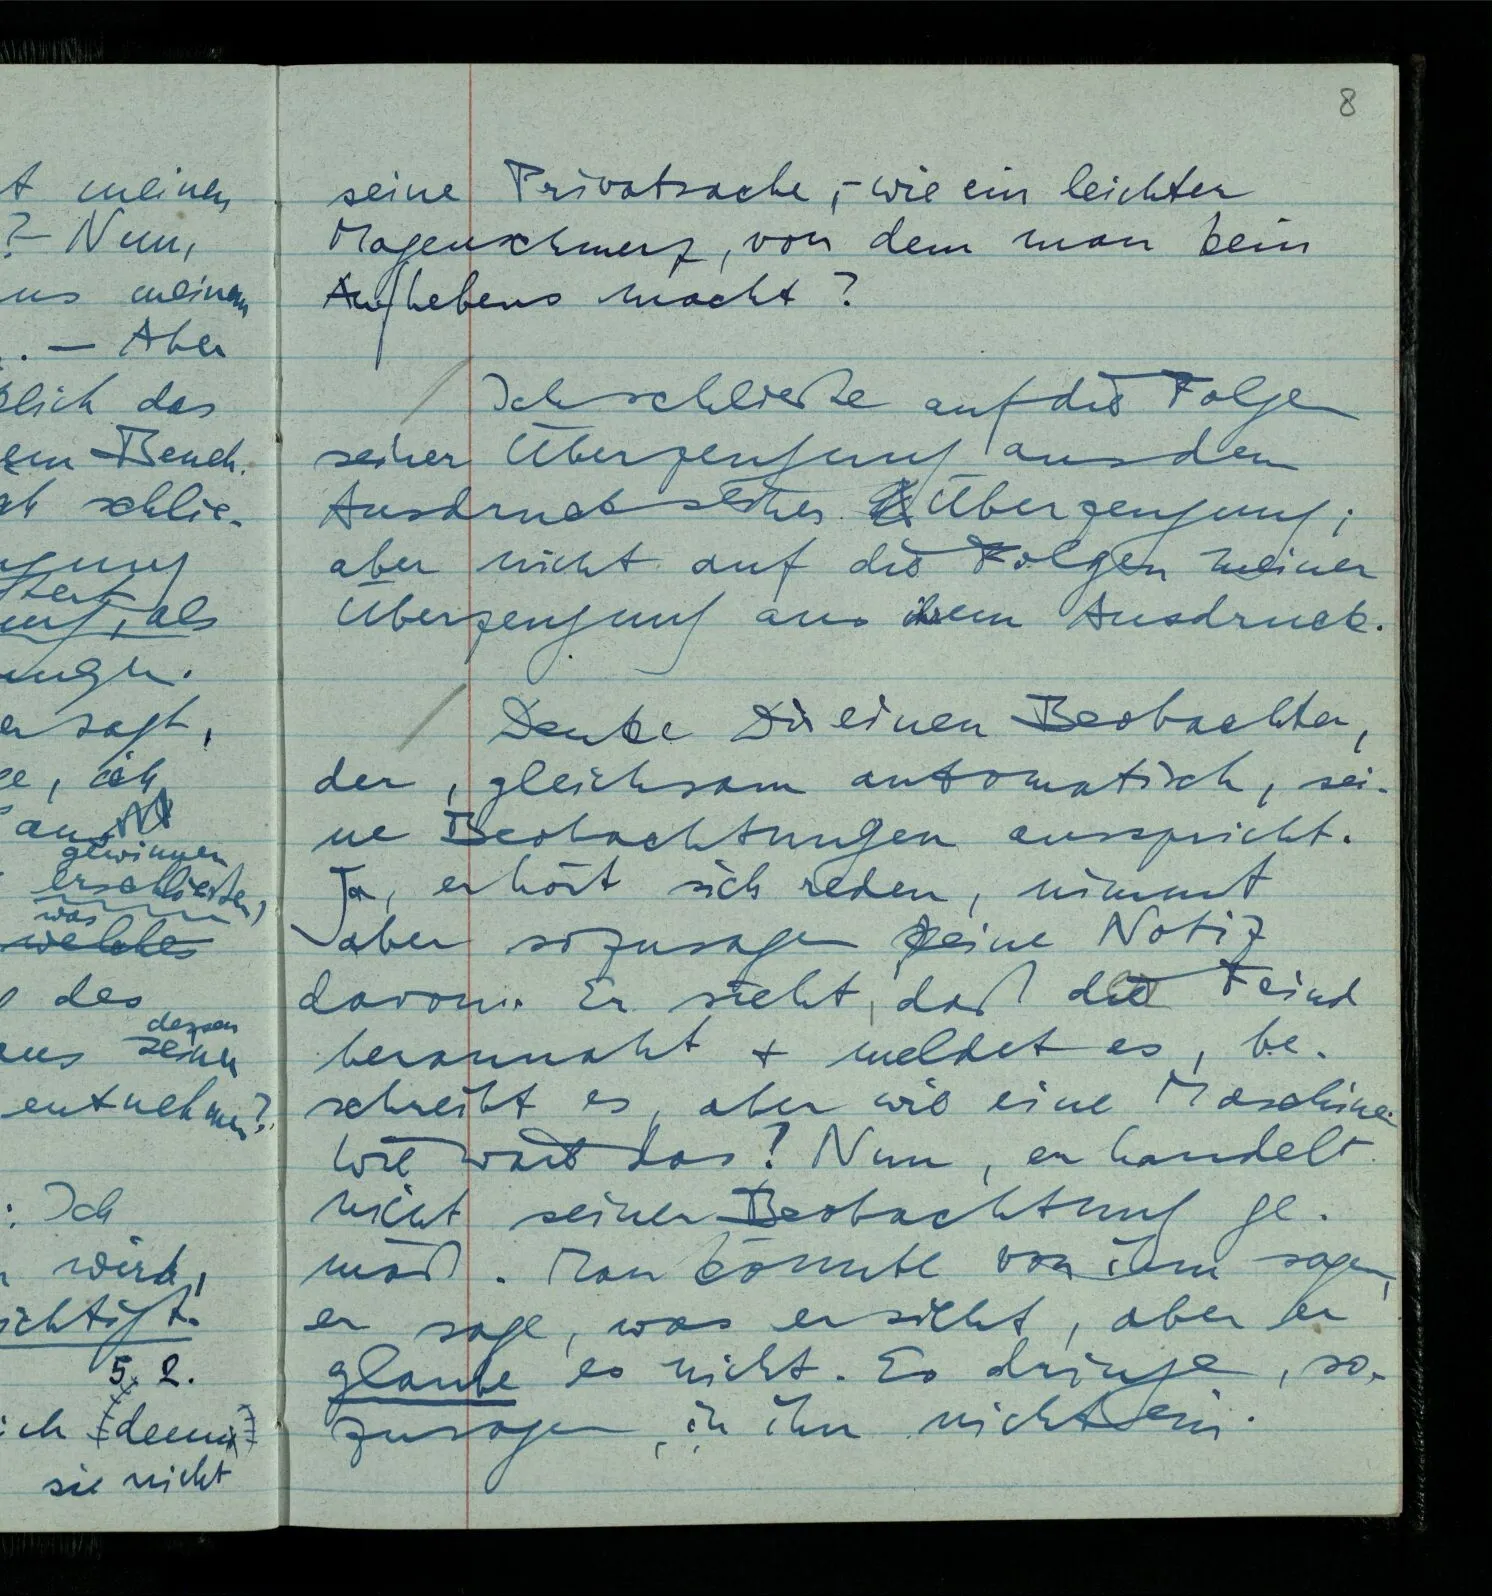 t meinen
? – Nun,
us meinem
. — Aber
klich das
em Beneh-
ch schlie-
gung
als
er sagt,
e, ich
an
gewinnen
erschließen,
was
welches
des
dessen
aus seinen
entnehmen?
: Ich
wird,
ichtigt.
5. 2.
ich (denn)
sie nicht
8
seine Privatsache, – wie ein leichter
Magenschmerz, von dem man kein
Aufhebens macht?
/ Ich schließe auf die Folgen
seiner Überzeugung aus dem
Ausdruck seiner Überzeugung;
aber nicht auf die Folgen meiner
Überzeugung aus ihrem Ausdruck.
/ Denke Dir einen Beobachter,
der, gleichsam automatisch, sei-
ne Beobachtungen ausspricht.
Ja, er hört sich reden, nimmt
aber sozusagen keine Notiz
davon. Er sieht, daß der Feind
herannaht + meldet es, be-
schreibt es, aber wie eine Maschine.
Wie wäre das? Nun, er handelt
nicht seiner Beobachtung ge-
mäß. Man könnte von ihm sagen,
er sage, was er sieht, aber er
glaube es nicht. Es dringe, so-
zusagen, in ihn nicht ein.